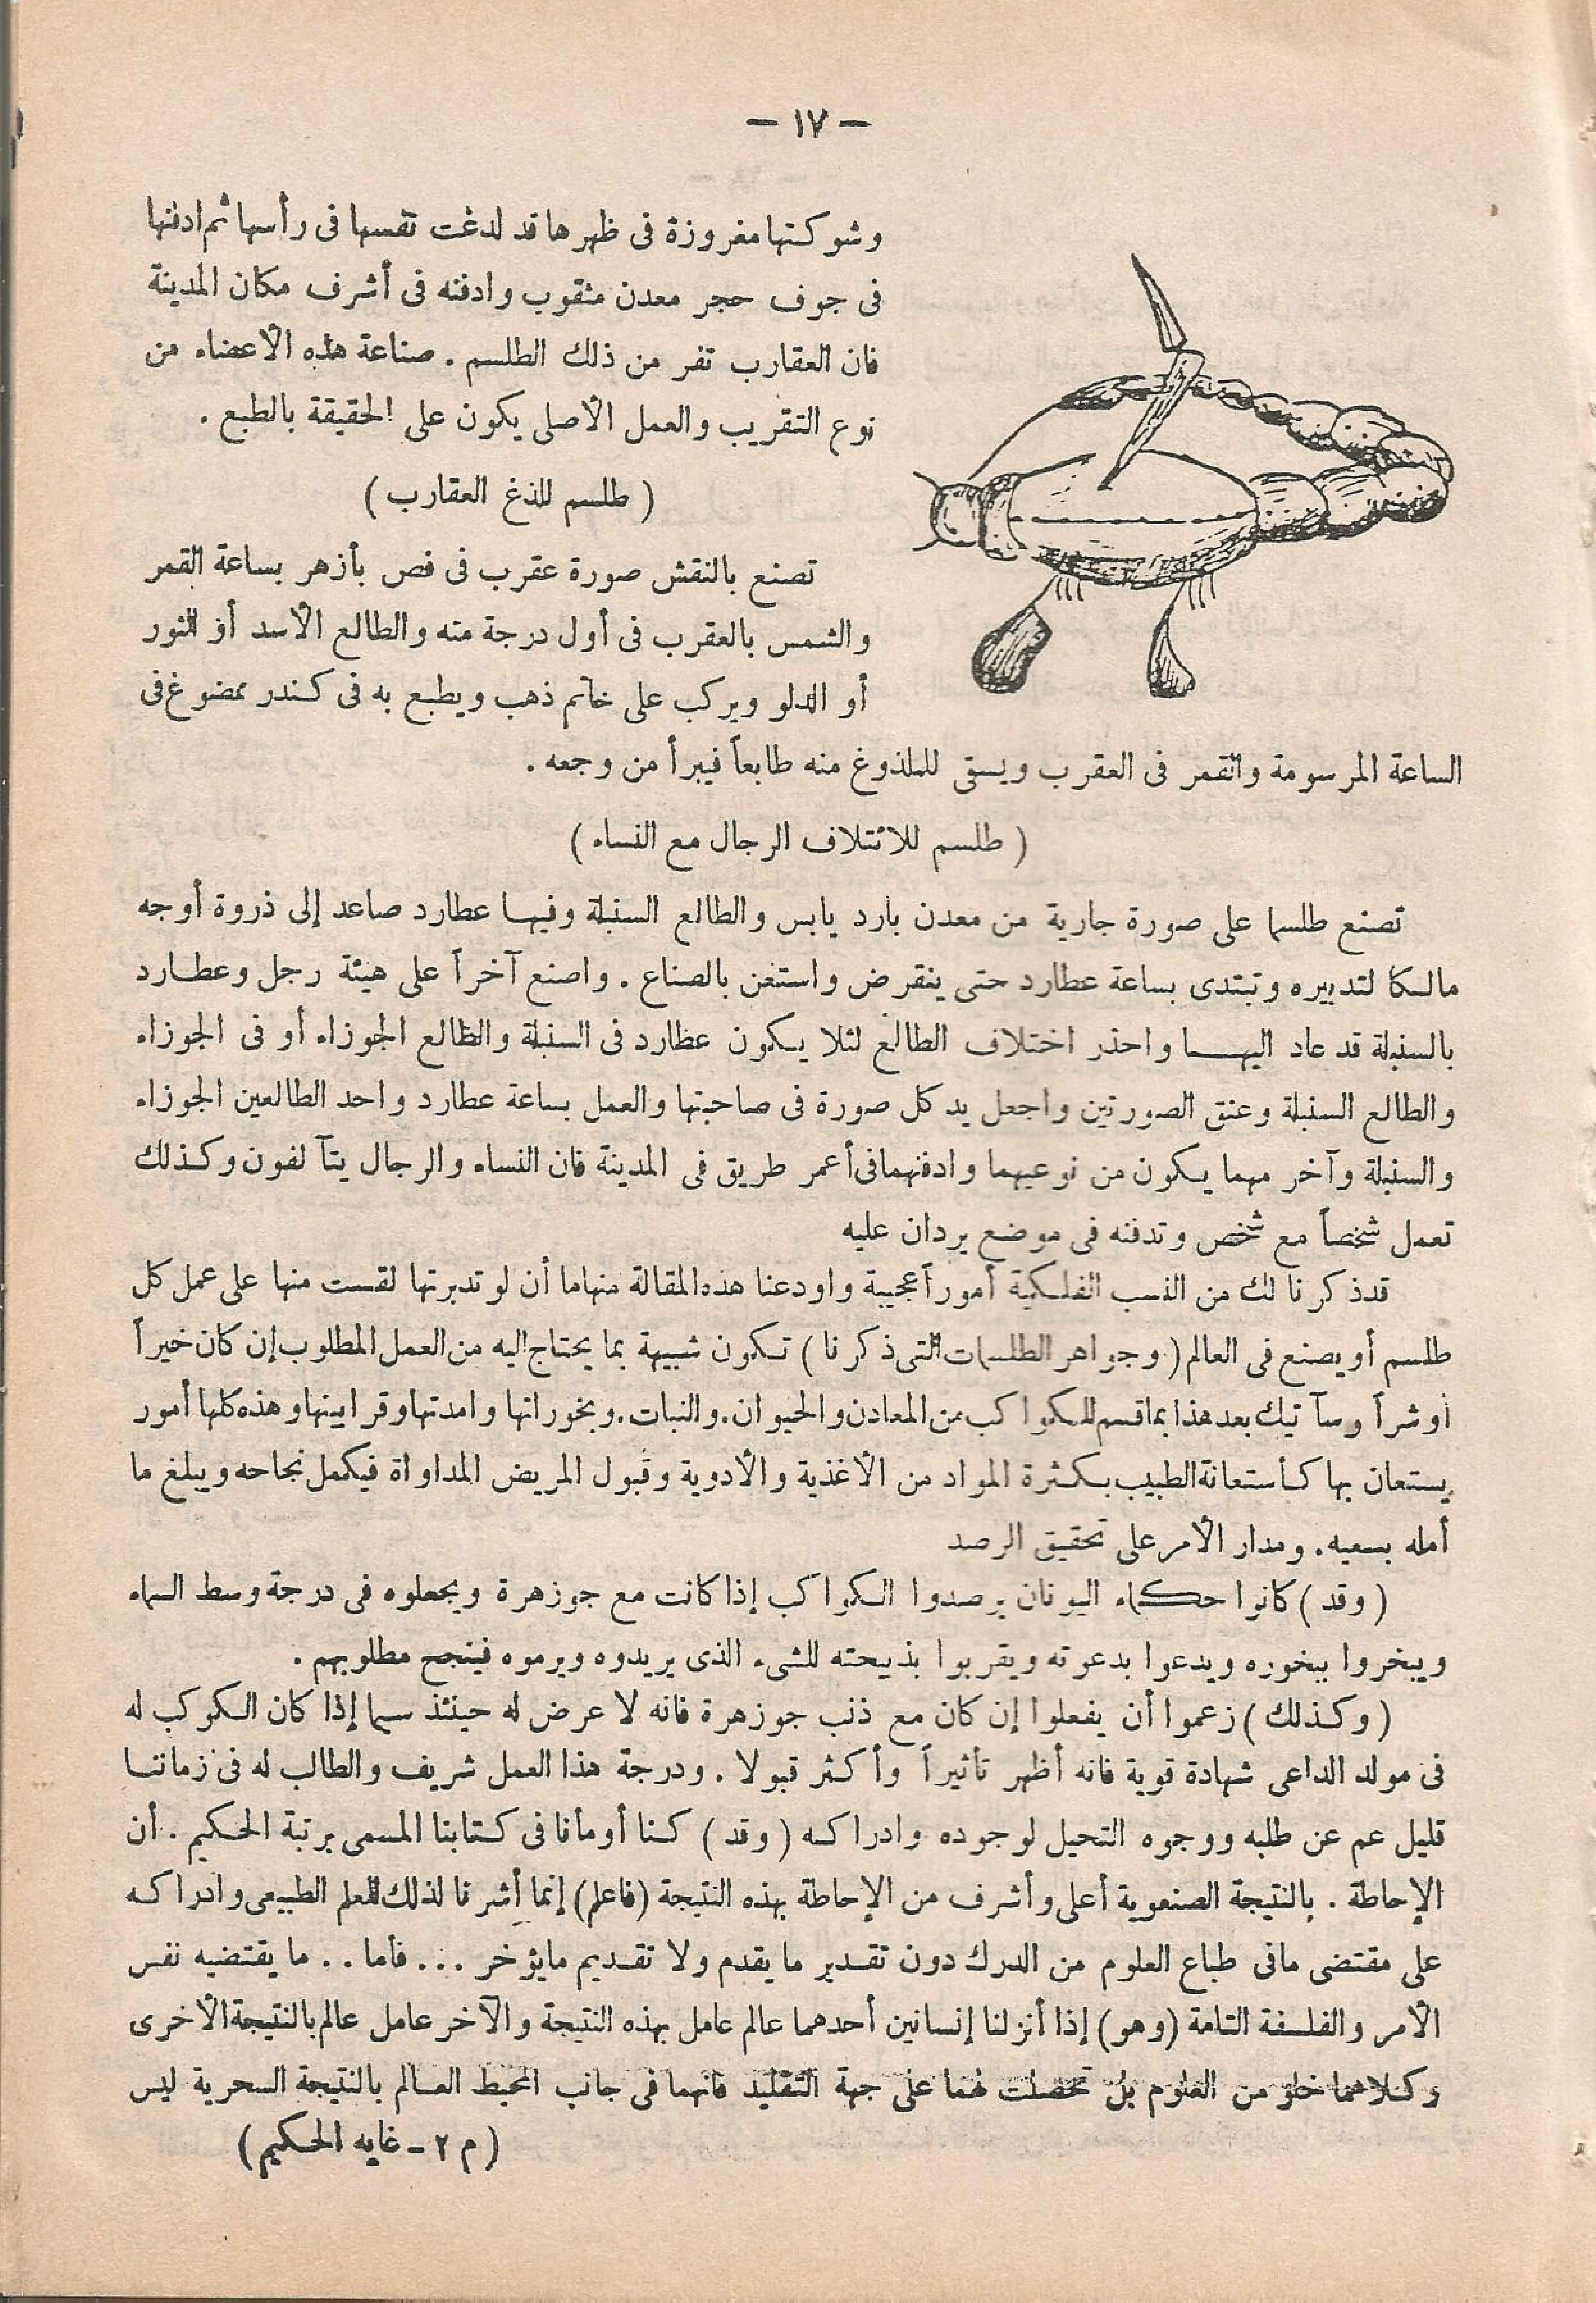 — ١٧ —
وشوكتها مغروزة فى ظهرها قد لدغت نفسها فى رأسها ثم ادفنها
فى جوف حجر معدن مثقوب وادفنه فى أشرف مكان المدينة
فان العقارب تفر من ذلك الطلسم . صناعة هذه الأعضاء من
نوع التقريب والعمل الأصلى يكون على الحقيقة بالطبع .
( طلسم للذغ العقارب )
تصنع بالنقش صورة عقرب فى فص بأزهر بساعة القمر
والشمس بالعقرب فى أول درجة منه والطالع الأسد أو الثور
أو الدلو ويركب على خاتم ذهب ويطبع به فى كندر ممضوغ فى
الساعة المرسومة والقمر فى العقرب ويسقى للملذوغ منه طابعاً فيبرأ من وجعه .
( طلسم للائتلاف الرجال مع النساء )
تصنع طلسما على صورة جارية من معدن بارد يابس والطالع السنبلة وفيها عطارد صاعد إلى ذروة أوجه
مالكا لتدبيره وتبتدى بساعة عطارد حتى ينقرض واستعن بالصناع . واصنع آخراً على هيئة رجل وعطارد
بالسنبلة قد عاد اليها واحذر اختلاف الطالع لئلا يكون عطارد فى السنبلة والطالع الجوزاء أو فى الجوزاء
والطالع السنبلة وعنق الصورتين واجعل يد كل صورة فى صاحبتها والعمل بساعة عطارد واحد الطالعين الجوزاء
والسنبلة وآخر مهما يكون من نوعيهما وادفنهما فى أعمر طريق فى المدينة فان النساء والرجال يتآلفون وكذلك
تعمل شخصاً مع شخص وتدفنه فى موضع يردان عليه
قد ذكرنا لك من النسب الفلكية أموراً عجيبة واودعنا هذه المقالة منها ما أن لو تدبرتها لقست منها على عمل كل
طلسم أو يصنع فى العالم ( وجواهر الطلسمات التى ذكرنا ) تكون شبيهة بما يحتاج اليه من العمل المطلوب إن كان خيراً
أو شراً وسآتيك بعد هذا بما قسم للكواكب من المعادن والحيوان . والنبات . وبخوراتها وامدتها وقرابينها وهذه كلها أمور
يستعان بها كأستعانة الطبيب بكثرة المواد من الأغذية والأدوية وقبول المريض المداواة فيكمل نجاحه ويبلغ ما
أمله بسعيه . ومدار الأمر على تحقيق الرصد
( وقد ) كانوا حكماء اليونان يرصدوا الكواكب إذا كانت مع جوزهرة ويجعلوه فى درجة وسط السماء
ويبخروا ببخوره ويدعوا بدعوته ويقربوا بذبيحته للشىء الذى يريدوه ويرموه فينجح مطلوبهم .
( وكذلك ) زعموا أن يفعلوا إن كان مع ذنب جوزهرة فانه لا عرض له حينئذ سيما إذا كان الكوكب له
فى مولد الداعى شهادة قوية فانه أظهر تأثيراً وأكثر قبولا . ودرجة هذا العمل شريف والطالب له فى زماننا
قليل عم عن طلبه ووجوه التحيل لوجوده وادراكه ( وقد ) كنا أومأنا فى كتابنا المسمى برتبة الحكيم . أن
الإحاطة . بالنتيجة الصنعوية أعلى وأشرف من الإحاطة بهذه النتيجة ( فاعلم ) إنما أشرنا لذلك للعلم الطبيعى وادراكه
على مقتضى مافى طباع العلوم من الدرك دون تقدير ما يقدم ولا تقديم مايؤخر ... فأما .. ما يقتضيه نفس
الأمر والفلسفة التامة ( وهو ) إذا أنزلنا إنسانين أحدهما عالم عامل بهذه النتيجة والآخر عامل عالم بالنتيجة الأخرى
وكلاهما خلو من العلوم بل تحصلت لهما على جهة التقليد فانهما فى جانب المحيط العالم بالنتيجة السحرية ليس
( م ٢ - غايه الحكيم )